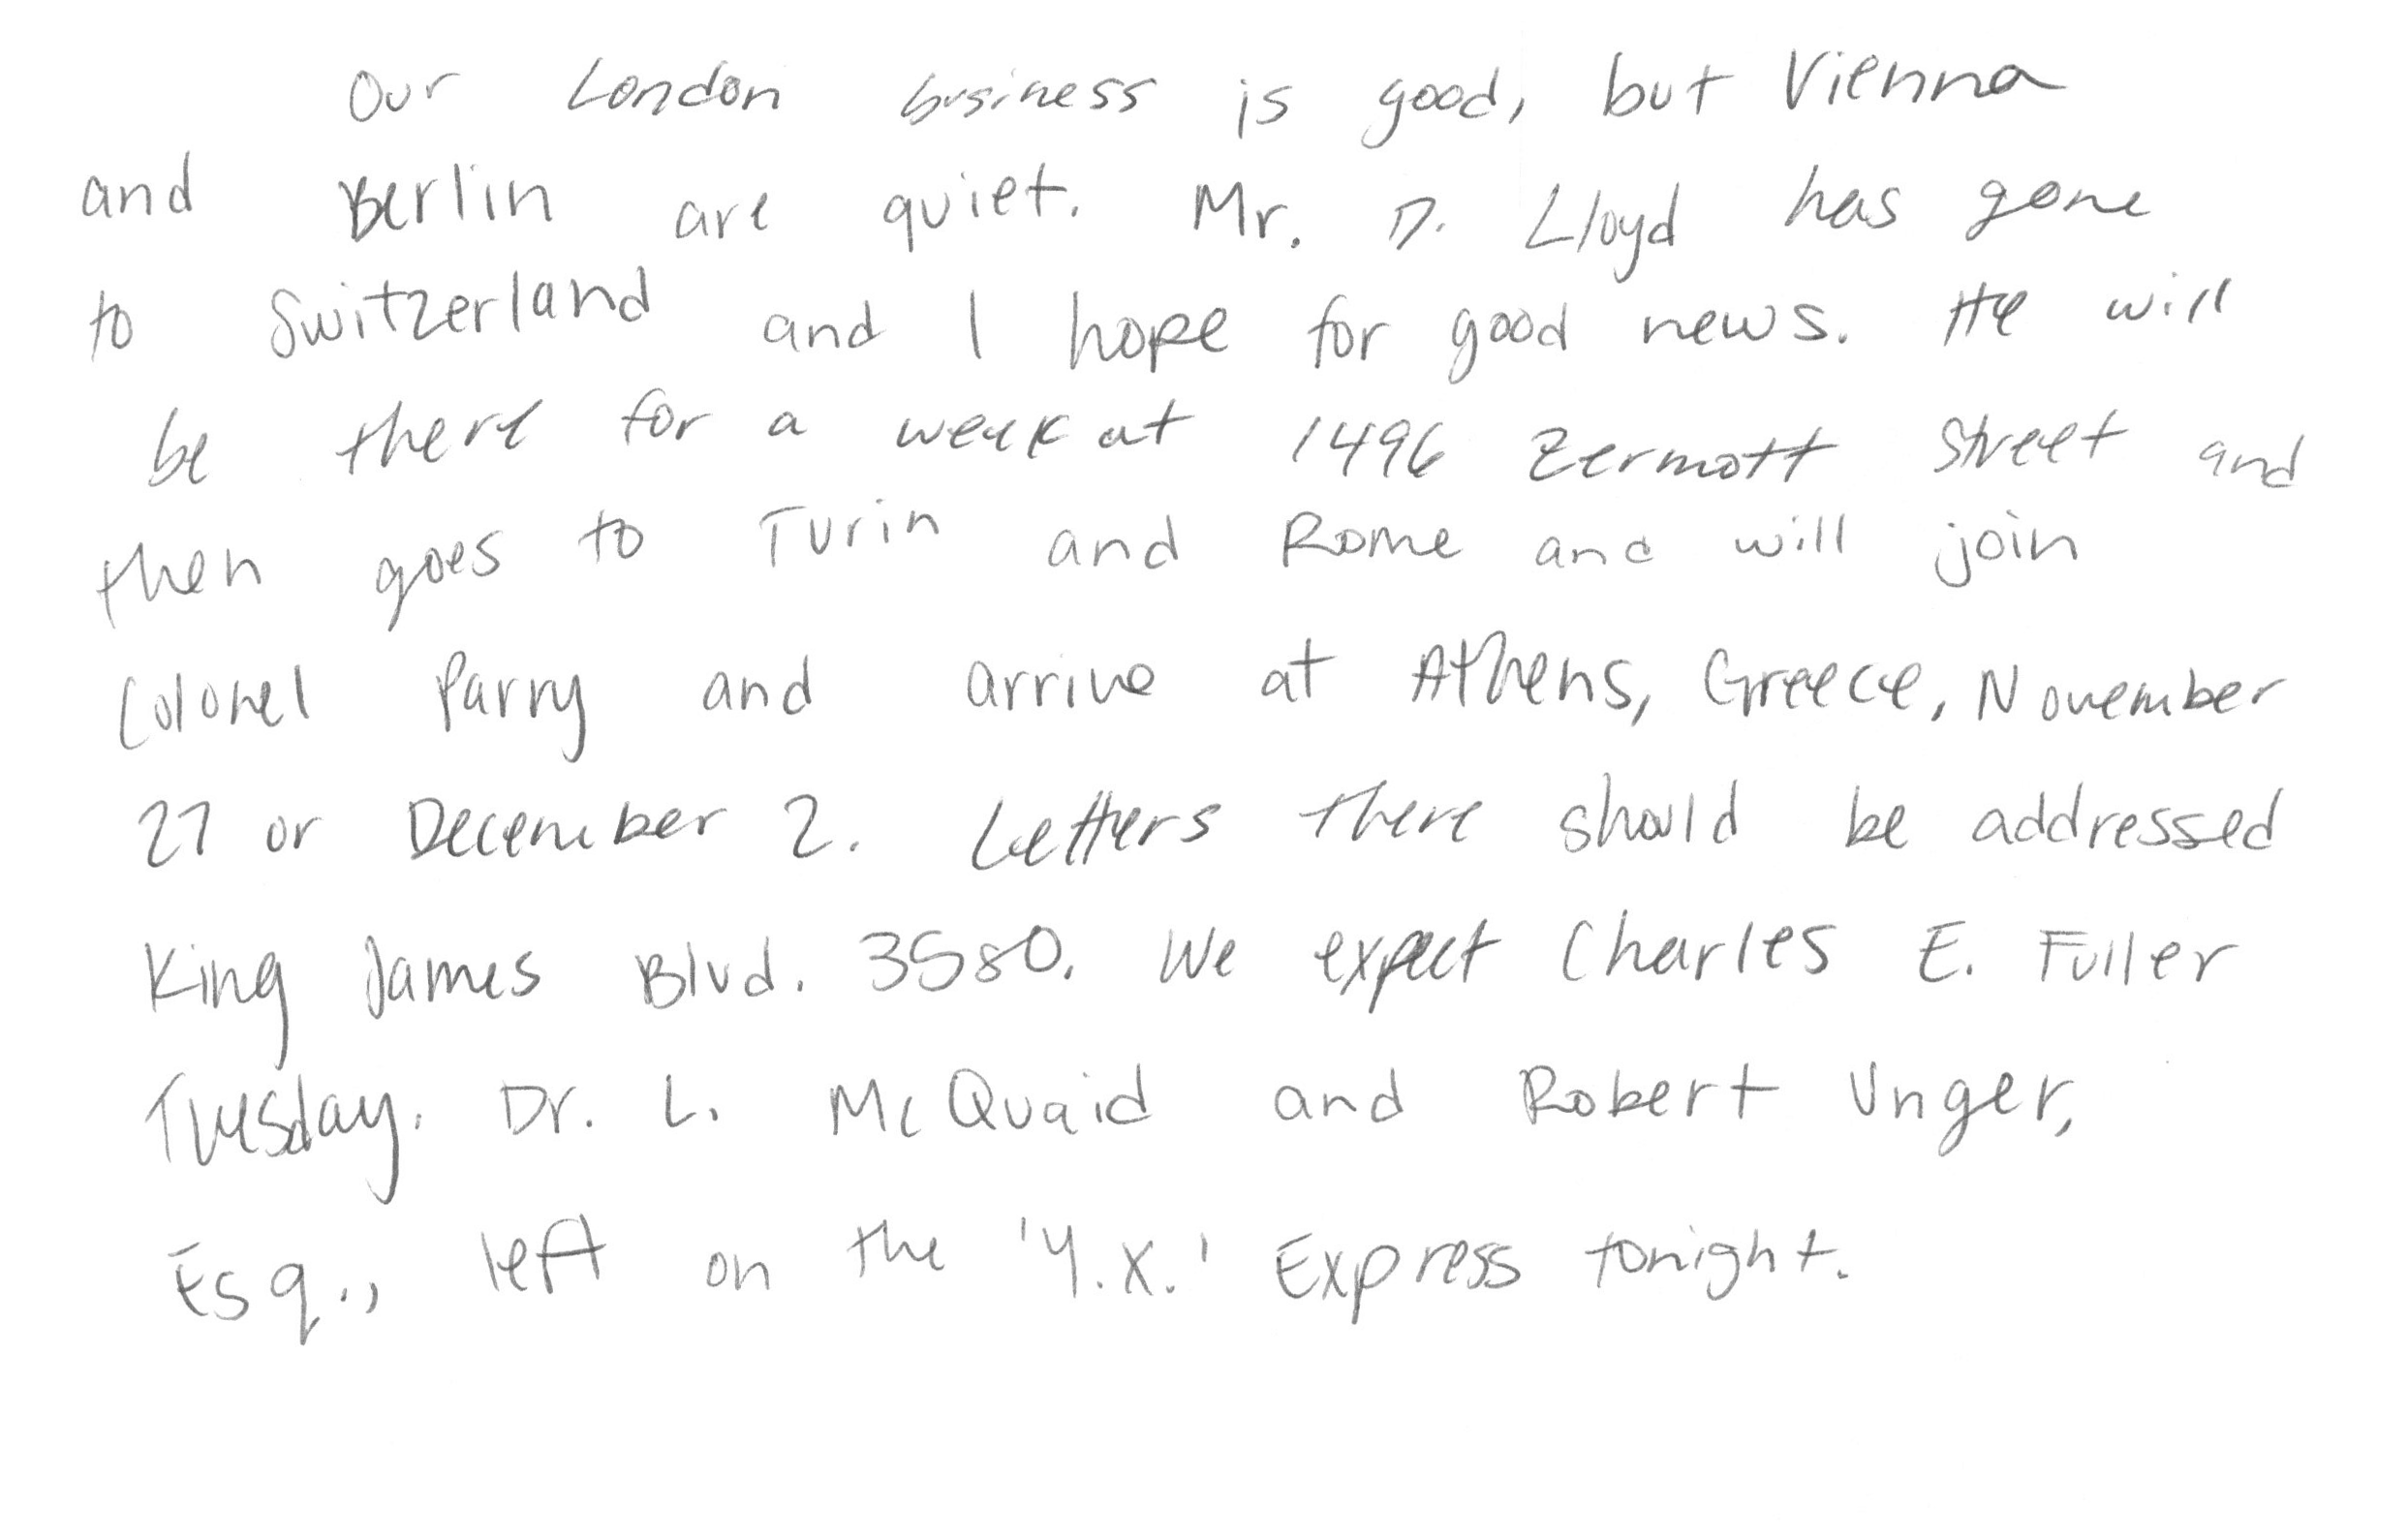 Our London business is good, but Vienna
and Berlin are quiet. Mr. D. Lloyd has gone
to Switzerland and I hope for good news. He will
be there for a week at 1496 Zermott Street and
then goes to Turin and Rome and will join
Colonel Parry and arrive at Athens, Greece, November
27 or December 2. Letters there should be addressed
King James Blvd. 3580. We expect Charles E. Fuller
Tuesday. Dr. L. McQuaid and Robert Unger,
Esq., left on the 'Y.X.' Express tonight.